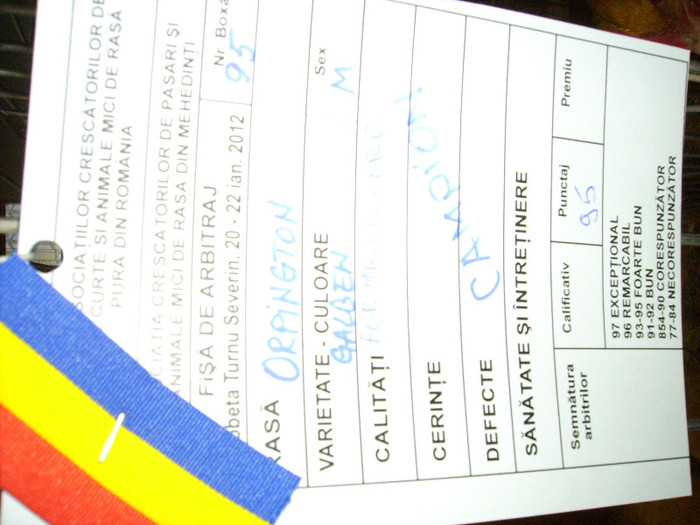 SOCIAȚIILOR CRESCĂTORILOR DE
CURTE SI ANIMALE MICI DE RASĂ
PURA DIN ROMANIA
CIAȚIA CRESCĂTORILOR DE PASARI ȘI
NIMALE MICI DE RASA DIN MEHEDINȚI
FiȘA DE ARBITRAJ
obeta Turnu Severin, 20 - 22 ian. 2012
Nr Boxă
95
RASĂ ORPINGTON
VARIETATE - CULOARE
GALBEN
Sex
M
CALITĂȚI
CERINȚE
DEFECTE
CAMPION
SĂNĂTATE ȘI ÎNTREȚINERE
Semnătura
arbitrilor
Calificativ
Punctaj
95
Premiu
97 EXCEPȚIONAL
96 REMARCABIL
93-95 FOARTE BUN
91-92 BUN
854-90 CORESPUNZĂTOR
77-84 NECORESPUNZĂTOR